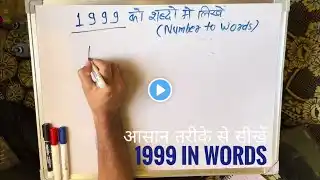 1999 को शब्दो में लिखें
(Number to Words)
1
आसान तरीके से सीखें
1999 IN WORDS